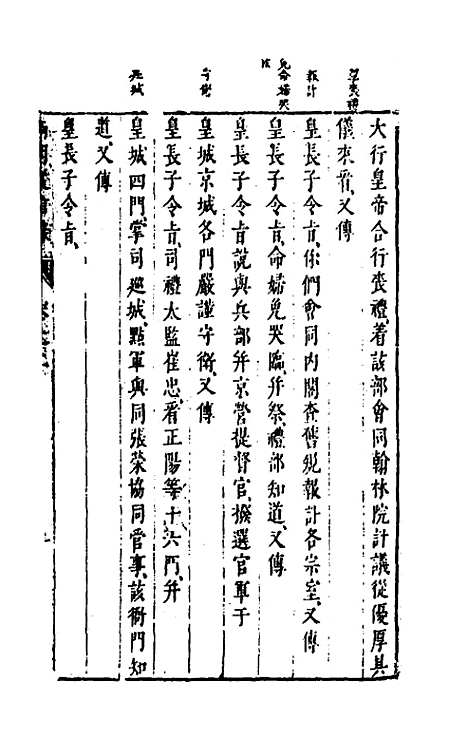 舉喪禮
報訃
免命婦哭
守衛
巡城
大行皇帝合行喪禮、着該部會同翰林院計議從優厚具
儀來看、又傳
皇長子令旨、你們會同內閣查舊規報訃各宗室、又傳
皇長子令旨、命婦免哭臨并祭、禮部知道、又傳
皇長子令旨說與兵部并京營提督官、撥選官軍于
皇城京城各門嚴謹守衛、又傳
皇長子令旨、司禮太監崔忠、看正陽等十六門、并
皇城四門掌司巡城、點軍與同張榮協同管事、該衙門知
道、又傳
皇長子令旨、